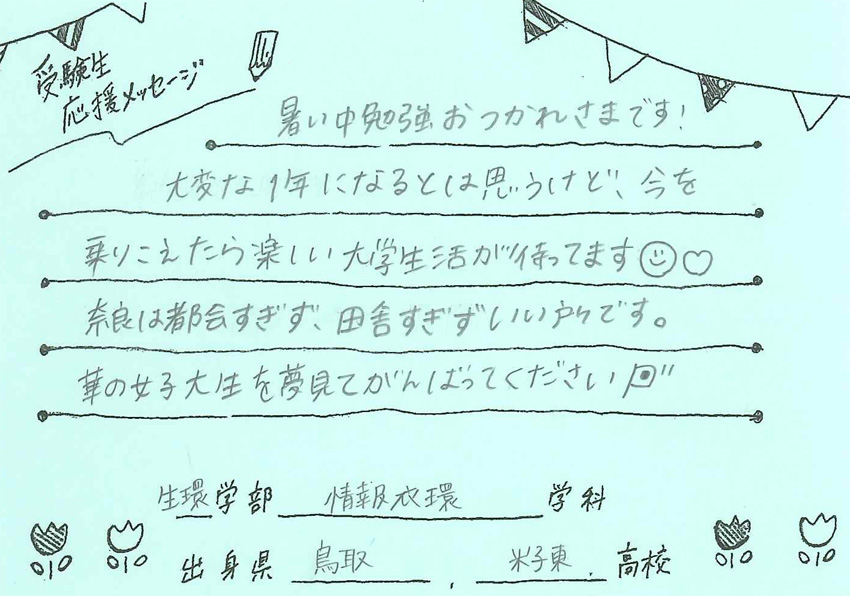 受験生
応援メッセージ
暑い中勉強おつかれさまです!
大変な1年になるとは思うけど、今を
乗りこえたら楽しい大学生活が待ってます
奈良は都会すぎず、田舎すぎずいい所です。
華の女子大生を夢見てがんばってください
生環学部 情報衣環学科
出身県 鳥取 . 米子東. 高校